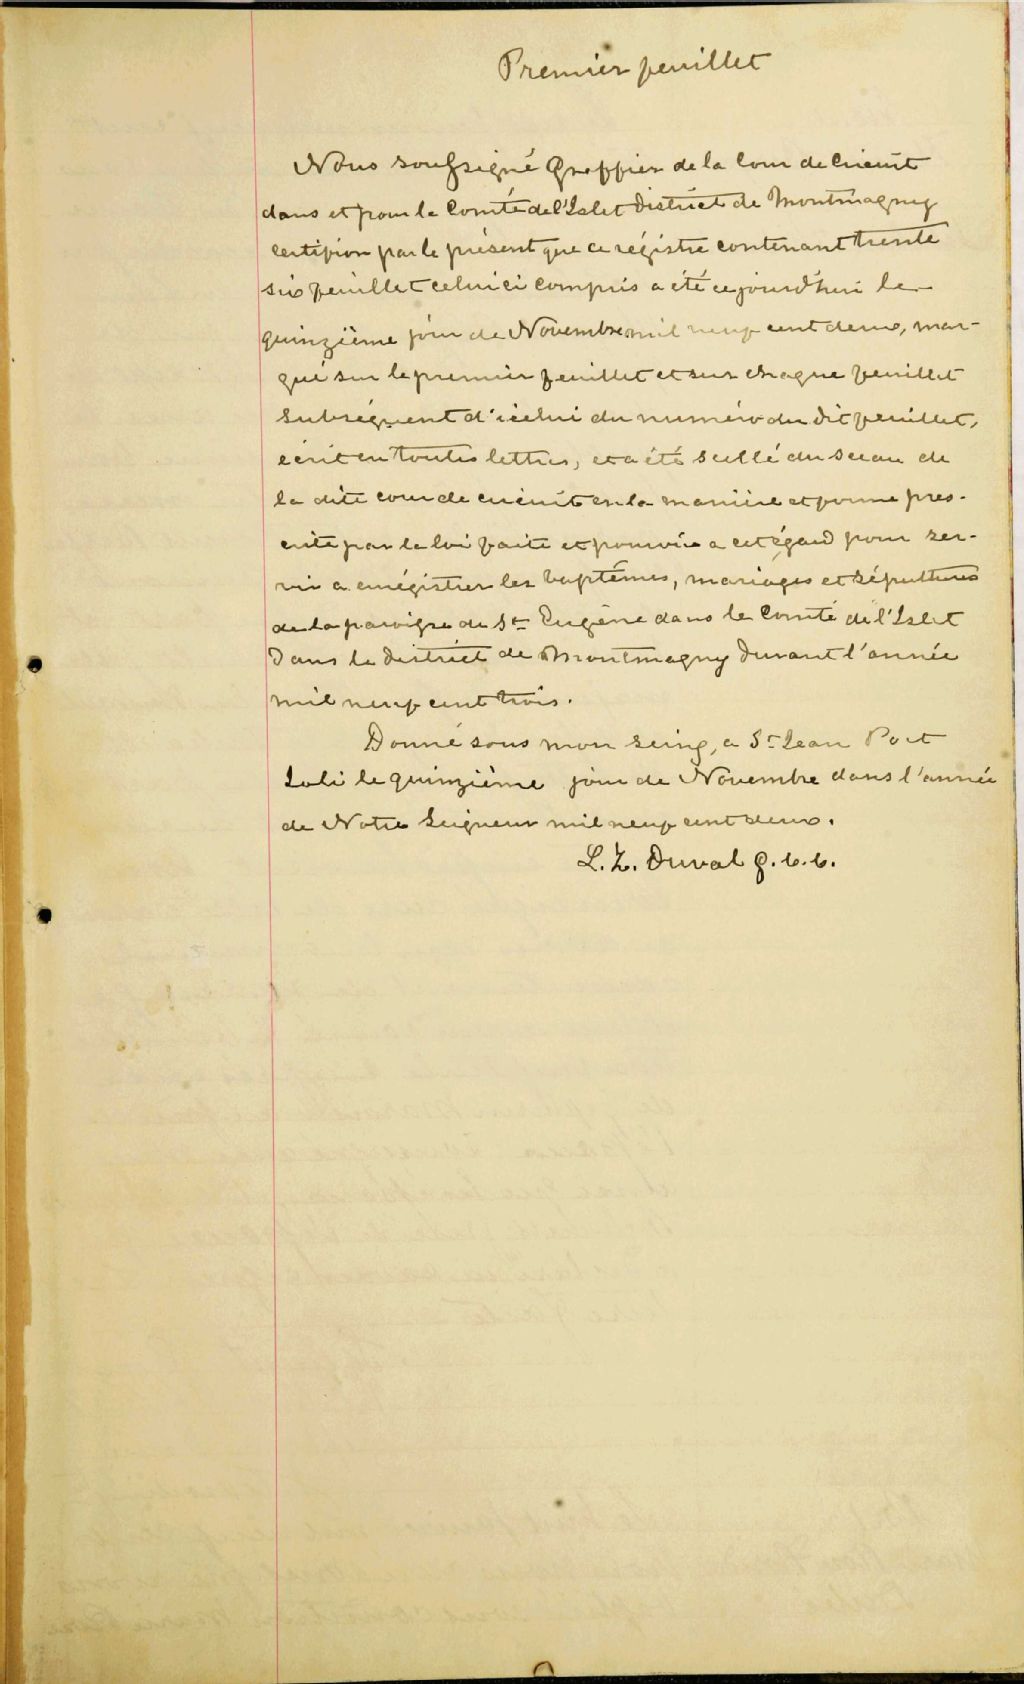 Premier feuillet
Nous soussigné Greffier de la Cour de Circuit
dans et pour le Comté de l'Islet District de Montmagny
certifion par le présent que ce régistre contenant trente
six feuillet celui ci compris a été ce jourd'hui le
quinzième jour de Novembre mil neuf cent deux, mar-
qué sur le premier feuillet et sur chaque feuillet
subséquent d'icelui du numéro du dit feuillet,
écrit en toutes lettres, et a été scellé du sceau de
la dite cour de circuit en la manière et forme pres-
crite par la loi faite et pourvue a cet égard pour ser-
vir a enrégistrer les baptêmes, mariages et sépultures
de la paroisse de St Eugène dans le Comté de l'Islet
Dans le district de Montmagny durant l'année
mil neuf cent trois.
Donné sous mon seing, a St Jean Port
Joli le quinzième jour de Novembre dans l'année
de Notre Seigneur mil neuf cent deux.
L. Z. Duval g.c.c.